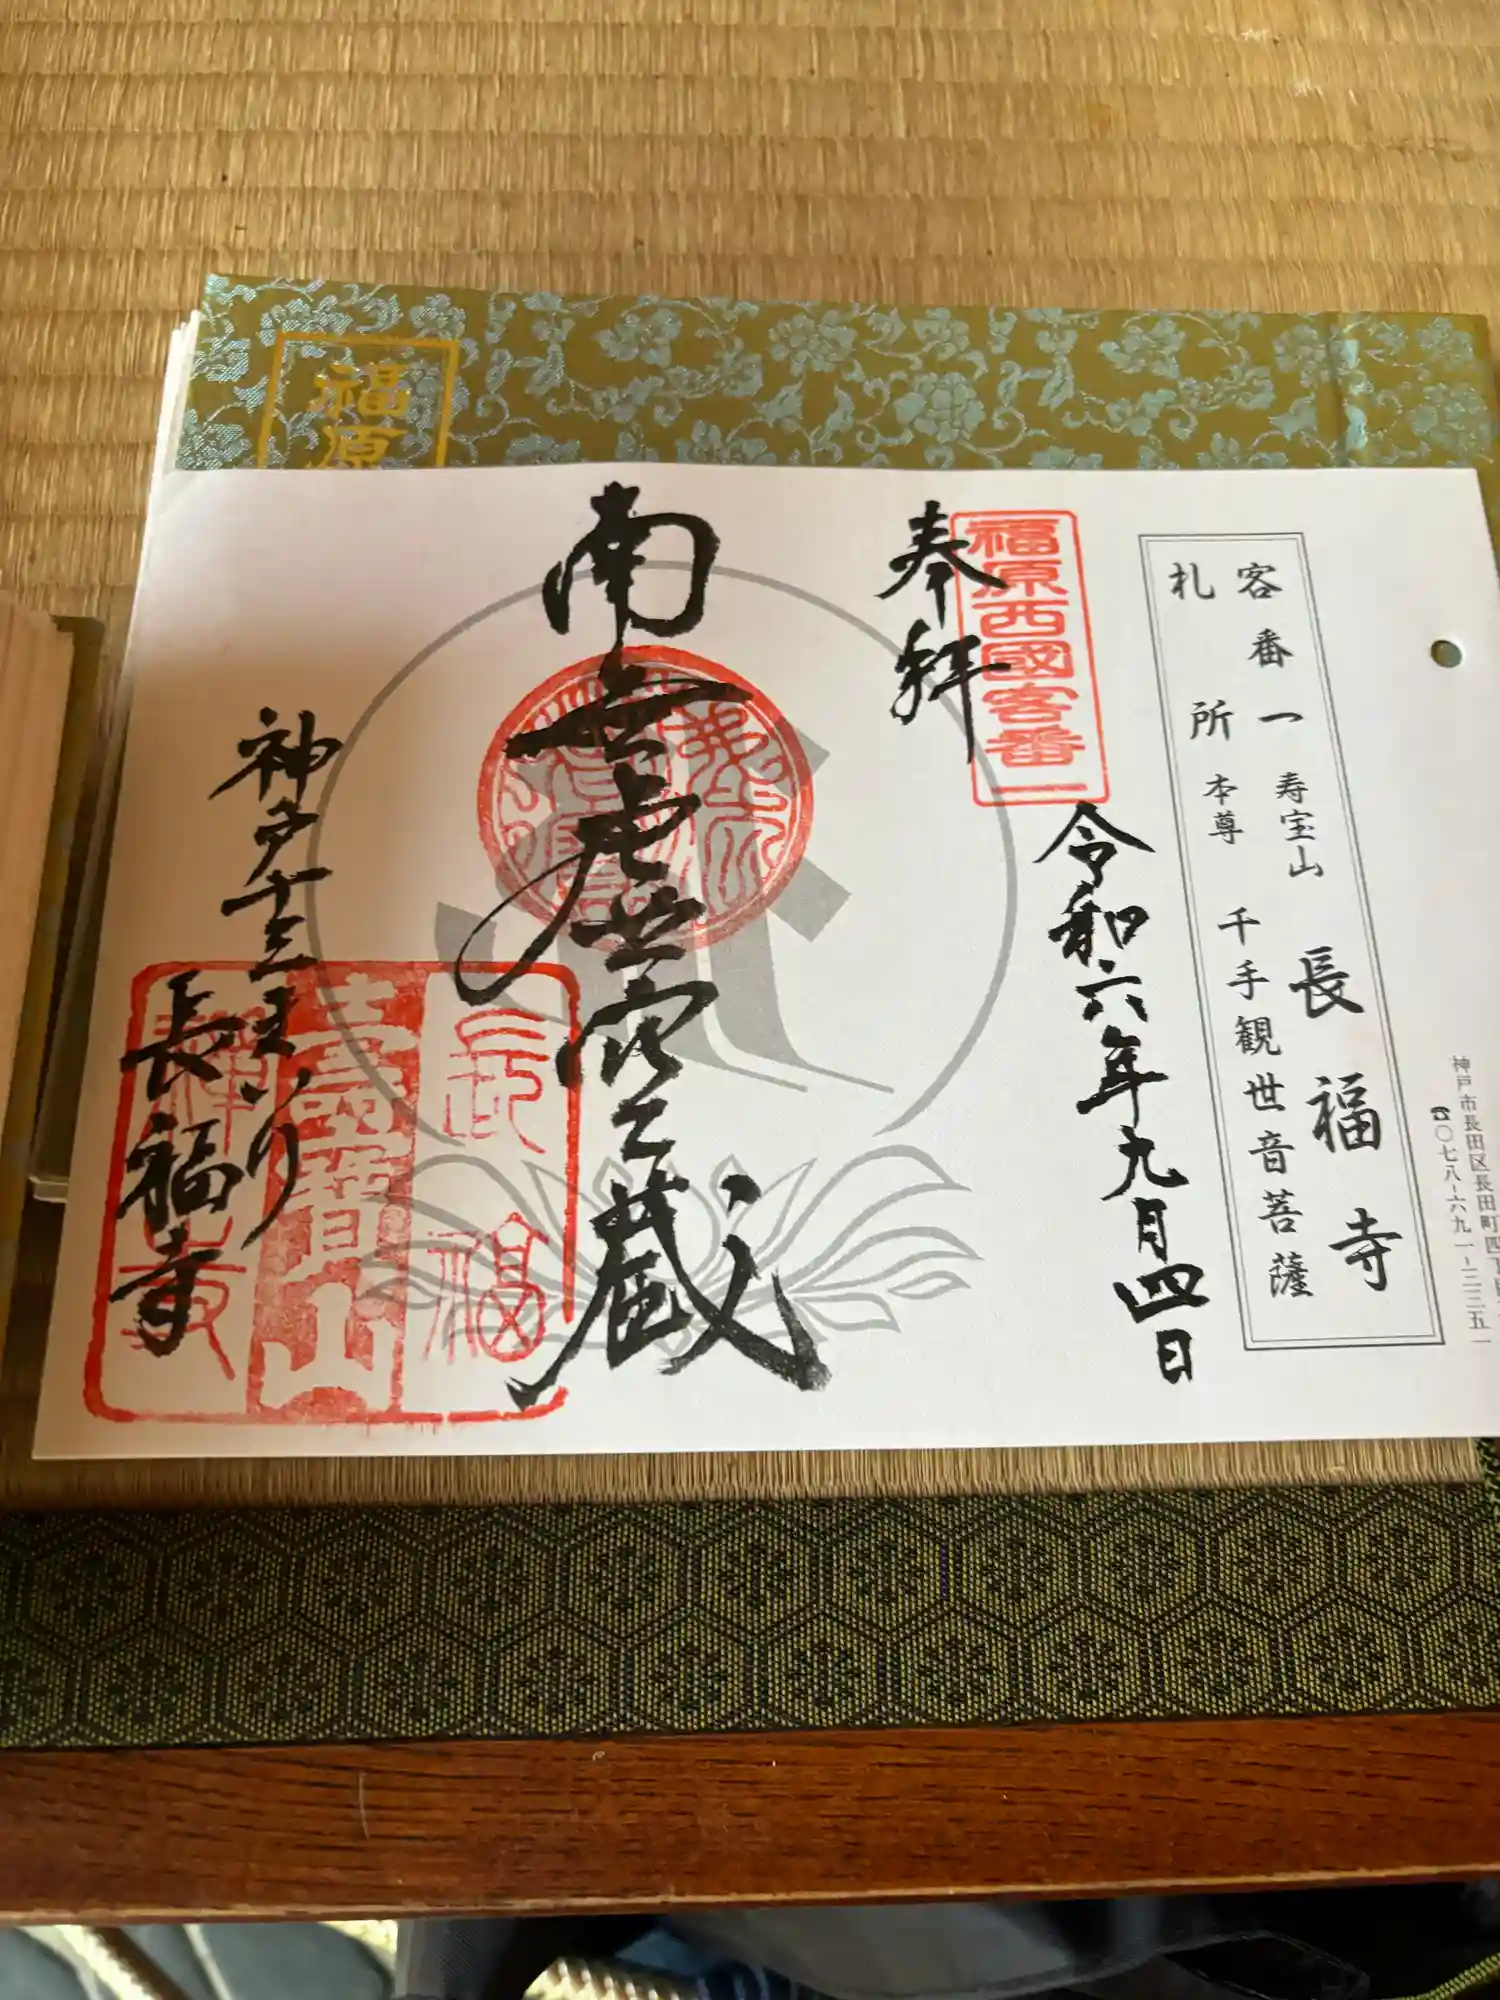 福原
客番一 寿宝山 長福寺
札所 本尊 千手観世音菩薩
神戸市長田区長田町四丁目
☎〇七八-六九一-二二五一
福原西國客番一
奉拝
令和六年九月四日
南無虚空蔵
神戸十三まいり
長福寺
長福
壽寶山
禪寺